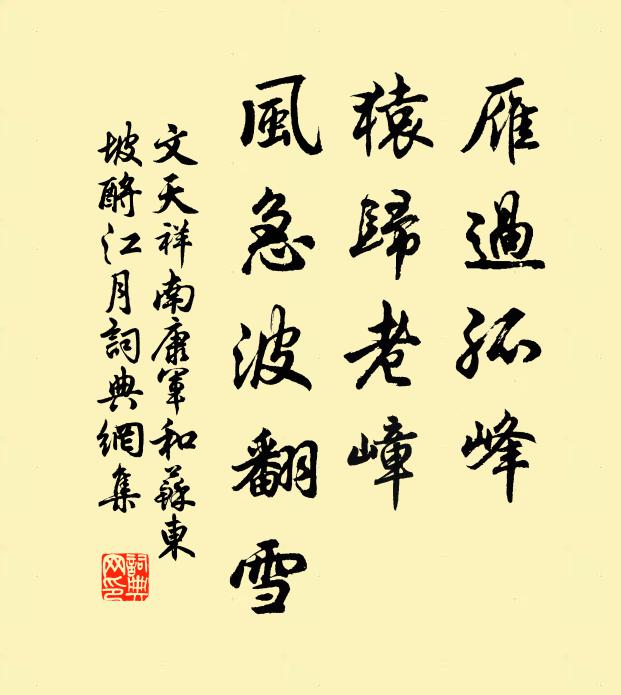 雁過孤峰
猿歸老嶂
風急波翻雪
文天祥南康軍和蘇東
坡酹江月詞典網集
詞典
网印